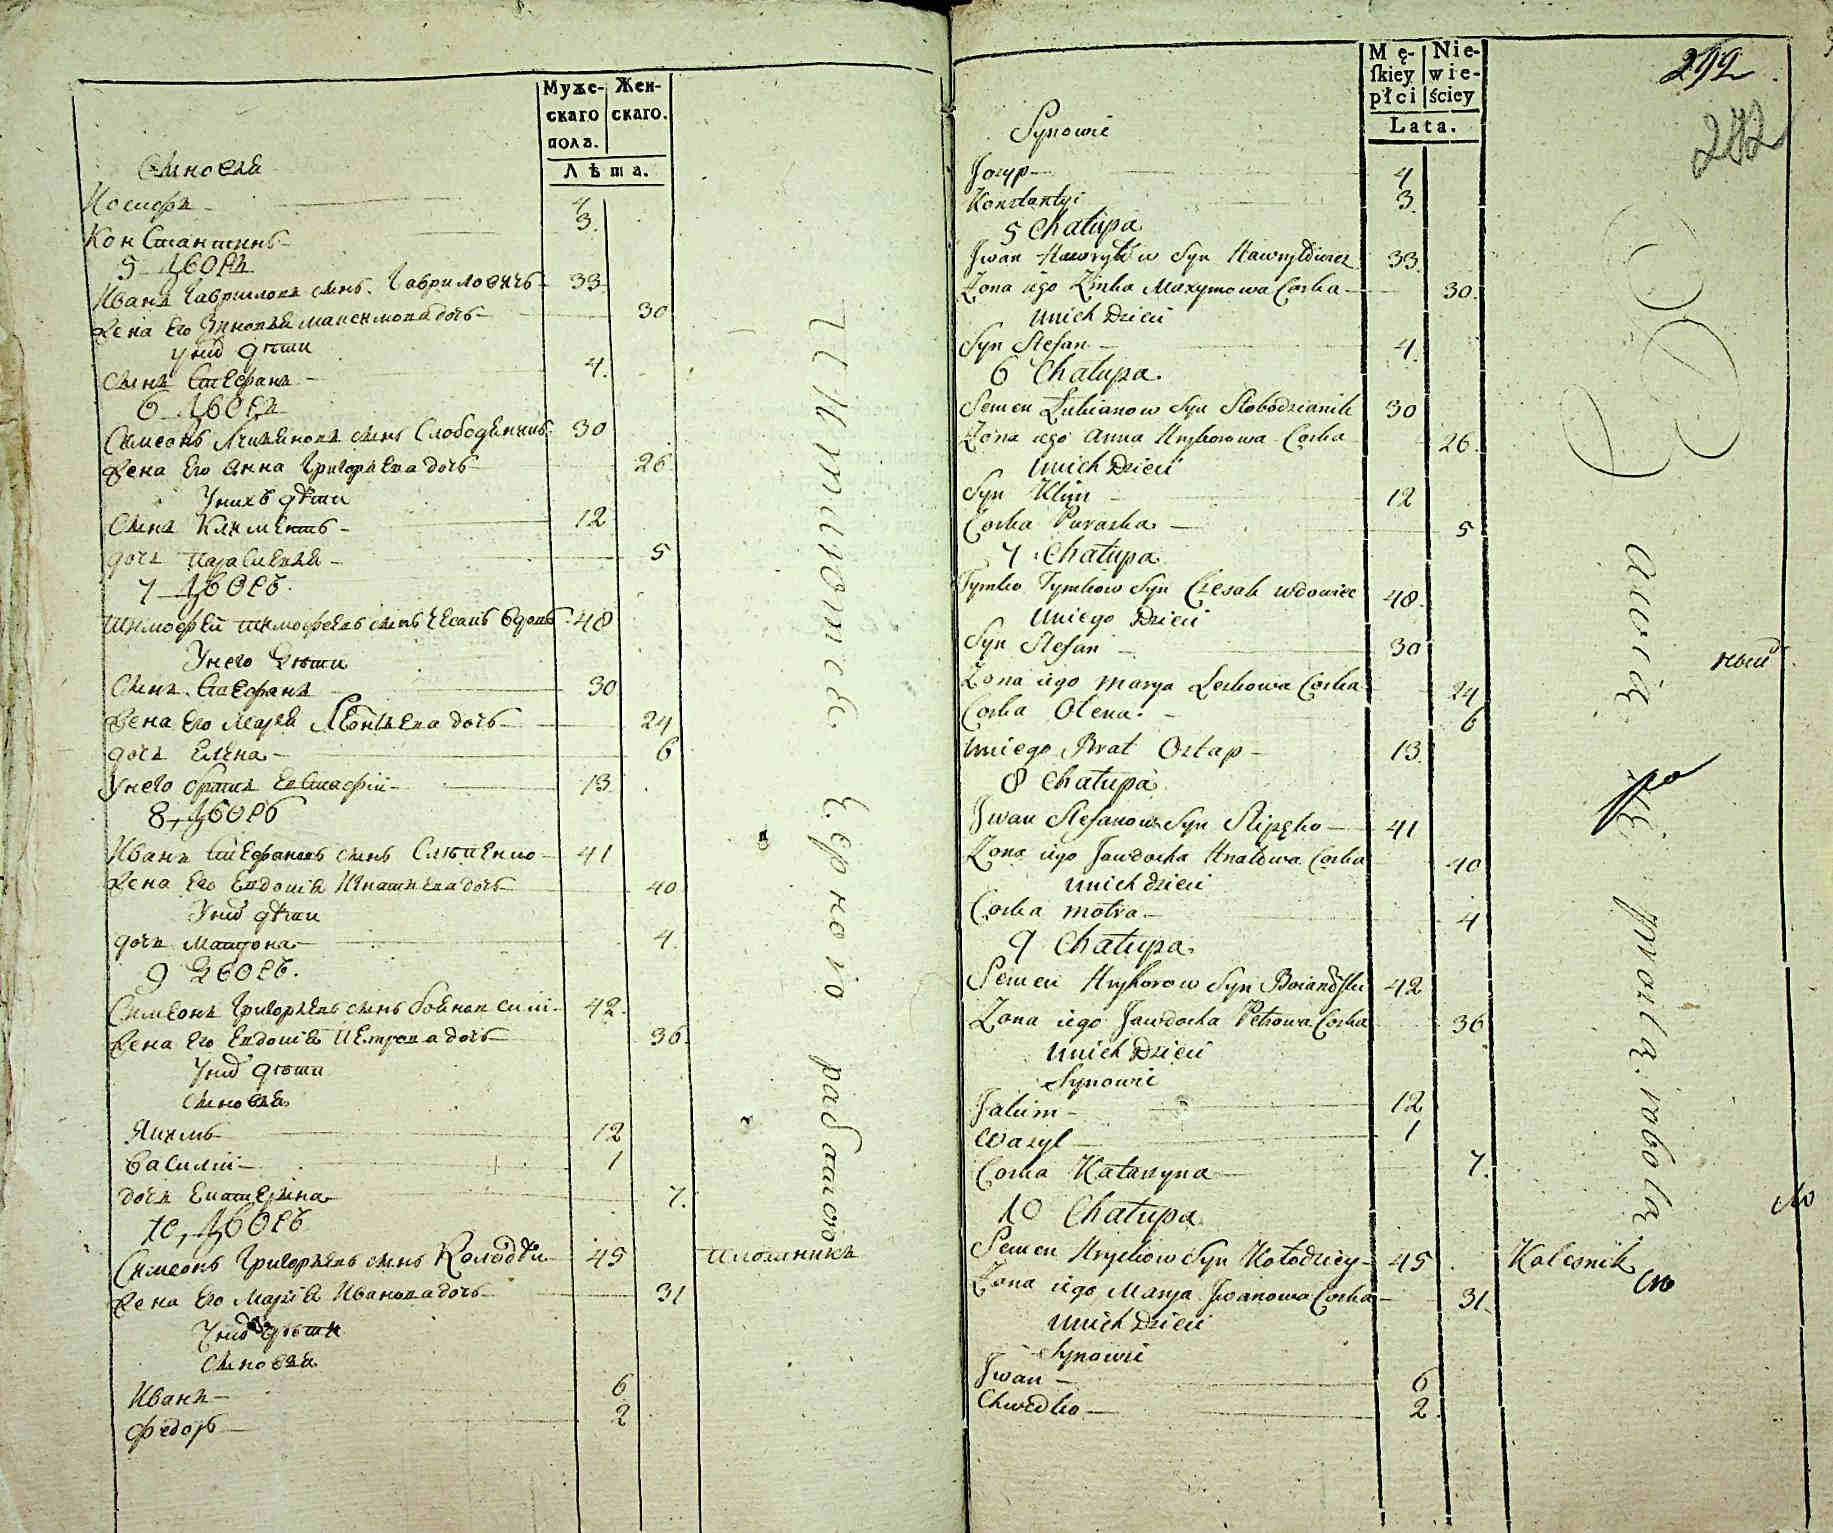 Муже-
скаго
пола.
Жен-
скаго.
Лѣта.
Синовья
Иосифъ 4
Константинъ 3.
5 дворъ
Иванъ Гавриловъ синъ Гавриловичъ 33
Жена Его Зиновья Максимова дочь 30
У нихъ дѣти
Синъ Стефанъ 4.
6 дворъ
Симеонъ Лукяновъ синъ Слободяникъ 30
Жена Его Анна Григорьева дочь 26
У нихъ дѣти
Синъ Климентъ 12
дочь Параскевія 5
7 дворъ
Тимофей Тимофеевъ синъ Чесакъ вдовъ 48
У него дѣти
Синъ Стефанъ 30
Жена Его Марья Леонтьева дочь 24
дочь Елена 6
У него братъ Евстафій 13
8, дворъ
Иванъ Стефановъ синъ Слѣпенко 41
Жена Его Евдокія Игнатьева дочь 40
У нихъ дѣти
дочь Матрона 4.
9 дворъ.
Симеонъ Григорьевъ синъ Боянскій 42.
Жена Его Евдокія Петрова дочь 36.
У нихъ дѣти
Синовья
Якимъ 12
Василій 1
дочь Екатерина 7.
10, дворъ
Симеонъ Григорьевъ синъ Колодѣй 45 Плотникъ
Жена Его Марія Иванова дочь 31
У нихъ дѣти
Синовья
Иванъ 6
Федоръ 2
Питаются Черною работою
Mę-
skiey
płci
Nie-
wie-
ściey
Lata.
292
272
Synowie
Jozyp 4
Konstantyi 3.
5 Chałupa
Jwan Hawryłow Syn Hawryłowicz 33.
Zona iego Zinka Maxymowa Corka 30.
U nich Dzieci
Syn Stefan 4.
6 Chałupa.
Semen Łukianow Syn Słobodzianik 30
Zona iego Anna Hryhorowa Corka 26.
U nich Dzieci
Syn Klim 12
Corka Paraska 5
7 Chałupa
Tymko Tymkow Syn Czesak wdowiec 48.
U niego Dzieci
Syn Stefan 30
Zona iego Marya Leskowa Corka 24
Corka Olena. 6
U niego Brat Ostap 13
8 Chałupa
Jwan Stefanow Syn Slipęko 41
Zona iego Jawdocha Hnatowa Corka 40
U nich dzieci
Corka Motra 4
9 Chałupa
Semen Hryhorow Syn Boianoski 42
Zona iego Jawdocha Petrowa Corka 36
U nich Dzieci
Synowie
Jakim 12
Wasyl 1
Corka Katarzyna 7.
10 Chałupa
Semen Hryckow Syn Kołodziey 45 Kolesnik
Zona iego Marya Jwanowa Corka 31.
U nich Dzieci
Synowie
Jwan 6
Chwedko 2.
prostą robotą